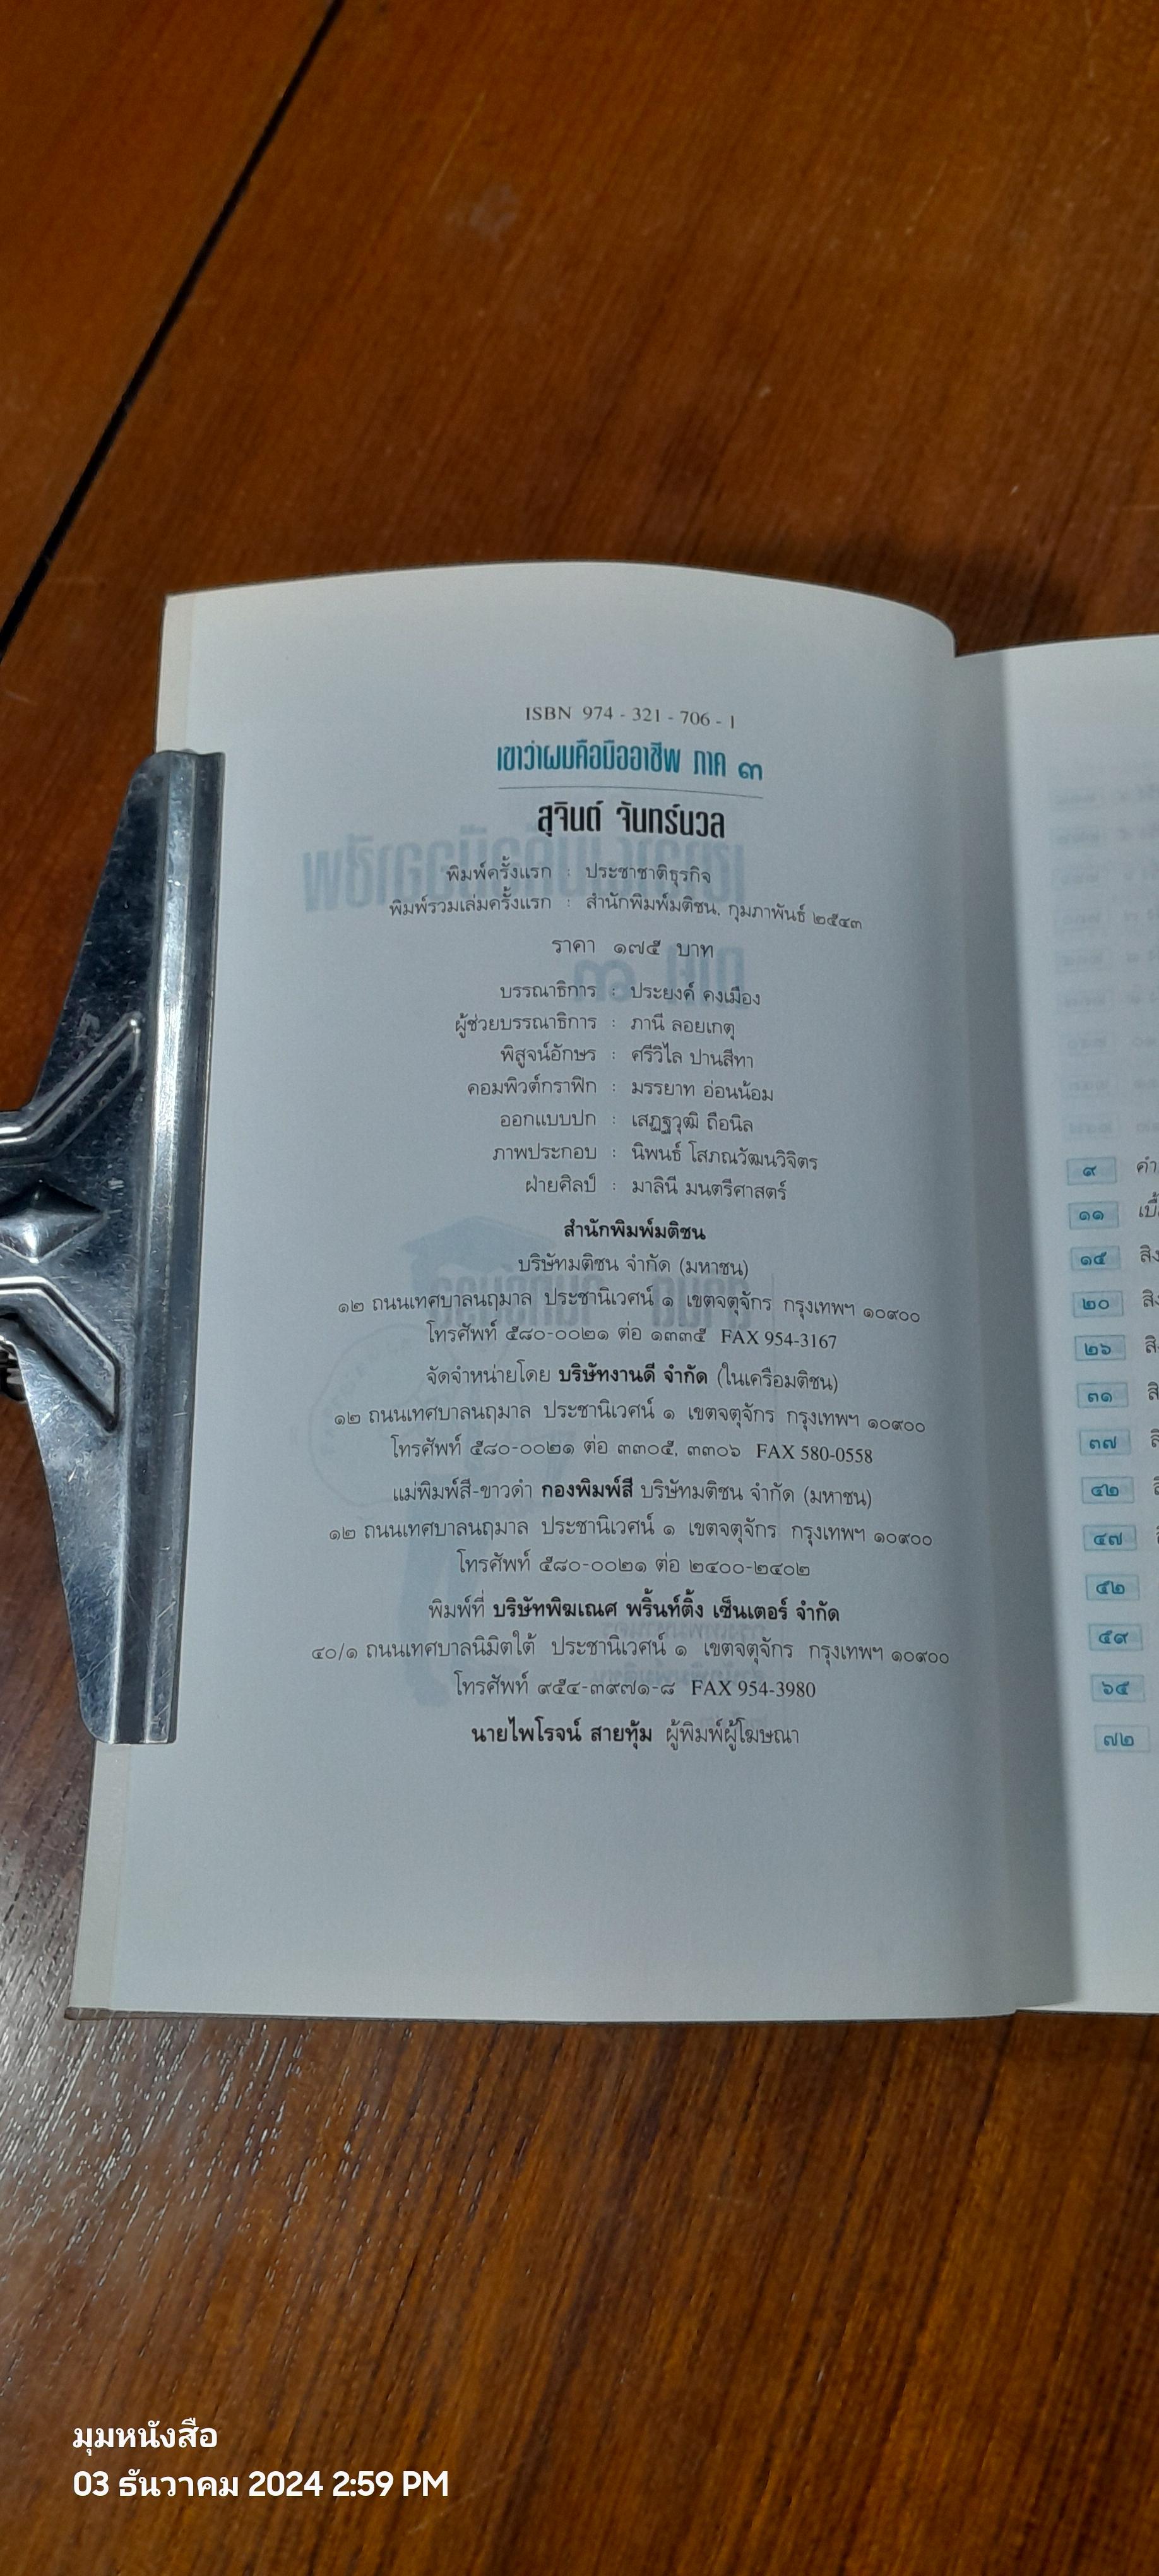 ISBN 974 - 321 - 706 - 1
เขาว่าผมคือมืออาชีพ ภาค ๓
สุจินต์ จันทร์นวล
พิมพ์ครั้งแรก : ประชาชาติธุรกิจ
พิมพ์รวมเล่มครั้งแรก : สำนักพิมพ์มติชน, กุมภาพันธ์ ๒๕๔๓
ราคา ๑๗๕ บาท
บรรณาธิการ : ประยงค์ คงเมือง
ผู้ช่วยบรรณาธิการ : ภานี ลอยเกตุ
พิสูจน์อักษร : ศรีวิไล ปานสีทา
คอมพิวต์กราฟิก : มรรยาท อ่อนน้อม
ออกแบบปก : เสฏฐวุฒิ ถือนิล
ภาพประกอบ : นิพนธ์ โสภณวัฒนวิจิตร
ฝ่ายศิลป์ : มาลินี มนตรีศาสตร์
สำนักพิมพ์มติชน
บริษัทมติชน จำกัด (มหาชน)
๑๒ ถนนเทศบาลนฤมาล ประชานิเวศน์ ๑ เขตจตุจักร กรุงเทพฯ ๑๐๙๐๐
โทรศัพท์ ๕๘๐-๐๐๒๑ ต่อ ๑๓๓๕ FAX 954-3167
จัดจำหน่ายโดย บริษัทงานดี จำกัด (ในเครือมติชน)
๑๒ ถนนเทศบาลนฤมาล ประชานิเวศน์ ๑ เขตจตุจักร กรุงเทพฯ ๑๐๙๐๐
โทรศัพท์ ๕๘๐-๐๐๒๑ ต่อ ๓๓๐๕, ๓๓๐๖ FAX 580-0558
แม่พิมพ์สี-ขาวดำ กองพิมพ์สี บริษัทมติชน จำกัด (มหาชน)
๑๒ ถนนเทศบาลนฤมาล ประชานิเวศน์ ๑ เขตจตุจักร กรุงเทพฯ ๑๐๙๐๐
โทรศัพท์ ๕๘๐-๐๐๒๑ ต่อ ๒๔๐๐-๒๔๐๒
พิมพ์ที่ บริษัทพิฆเณศ พริ้นท์ติ้ง เซ็นเตอร์ จำกัด
๔๐/๑ ถนนเทศบาลนิมิตใต้ ประชานิเวศน์ ๑ เขตจตุจักร กรุงเทพฯ ๑๐๙๐๐
โทรศัพท์ ๙๕๔-๓๙๗๑-๘ FAX 954-3980
นายไพโรจน์ สายทุ้ม ผู้พิมพ์ผู้โฆษณา
๙
๑๑
๑๕
๒๐
๒๖
๓๑
๓๗
๔๒
๔๗
๕๒
๕๙
๖๕
๗๒
มุมหนังสือ
03 ธันวาคม 2024 2:59 PM